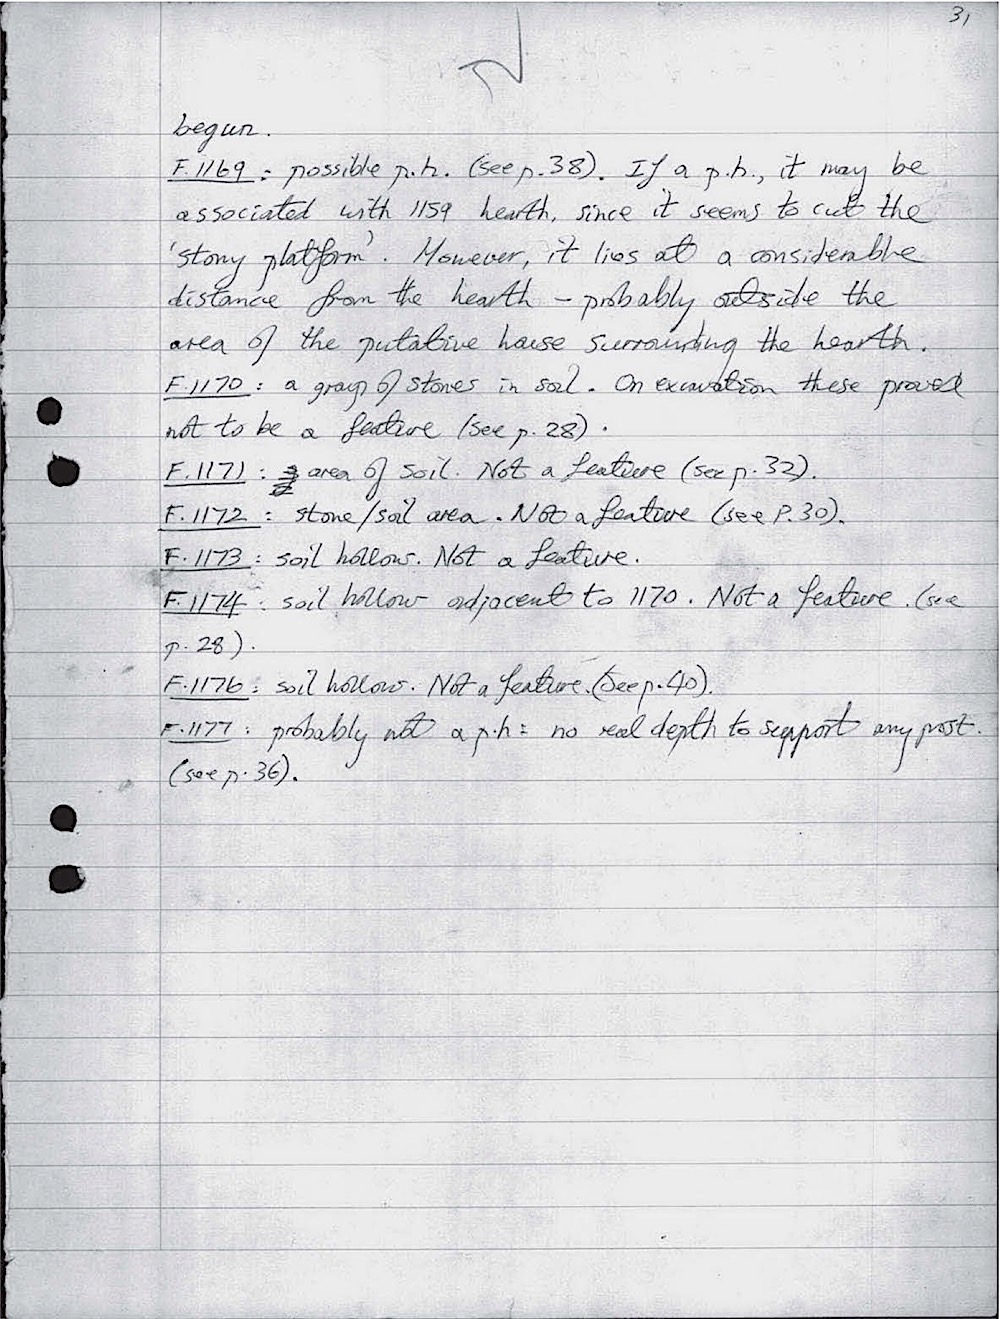 31
begun.
F.1169 : possible p.h. (see p.38). If a p.h., it may be
associated with 1159 hearth, since it seems to cut the
'stony platform'. However, it lies at a considerable
distance from the hearth – probably outside the
area of the putative house surrounding the hearth.
F.1170 : a group of stones in soil. On excavation these proved
not to be a feature (see p.28).
F.1171 : area of soil. Not a feature (see p.32).
F.1172 : stone/soil area. Not a feature (see P.30).
F.1173 : soil hollow. Not a feature.
F.1174 : soil hollow adjacent to 1170. Not a feature. (see
p.28).
F.1176 : soil hollow. Not a feature. (See p.40).
F.1177 : probably not a p.h : no real depth to support any post.
(see p.36).